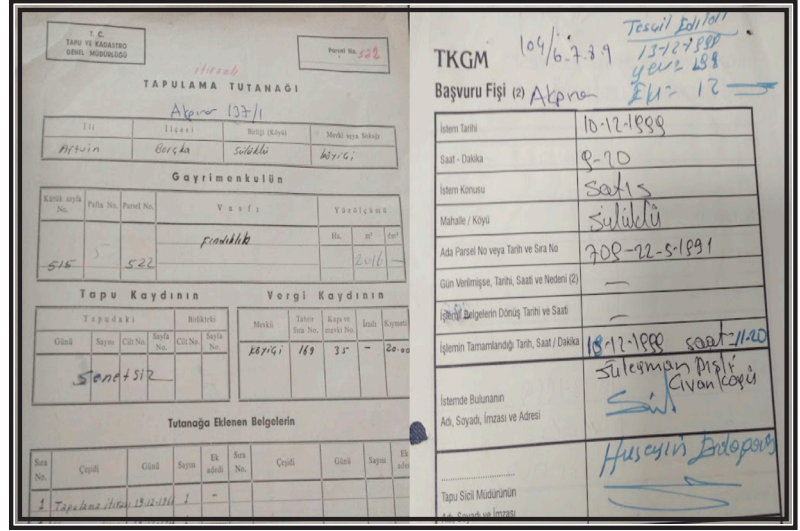 T. C.
TAPU VE KADASTRO
GENEL MÜDÜRLÜĞÜ
Parsel No. 522
itirazlı
TAPULAMA TUTANAĞI
Akpınar 137/1
İli İlçesi Birliği (Köyü) Mevki veya Sokağı
Artvin Borçka Sülüklü Köyiçi
Gayrimenkulün
Kütük sayfa No. Pafta No. Parsel No. Vasfı Yüzölçümü
Ha. m² dm²
515 5 522 Fındıklık
Tapu Kaydının Vergi Kaydının
Tapudaki Birlikteki
Günü Sayısı Cilt No. Sayfa No. Cilt No. Sayfa No.
Mevkii Tahrir Sıra No. Kapı ve mevki No. İradı Kıymeti
Senetsiz
Köyiçi 169 35 - 20.00
Tutanağa Eklenen Belgelerin
Sıra No. Çeşidi Günü Sayısı Ek adedi Sıra No. Çeşidi Günü Sayısı Ek
1 Tapulama itirazı 1 -
Tescil Edildi
13-12-1999
yev= 198
104/6.7.8.9
TKGM
Başvuru Fişi (2) Akpınar
İstem Tarihi 10-12-1999
Saat - Dakika 9-20
İstem Konusu Satış
Mahalle / Köyü Sülüklü
Ada Parsel No veya Tarih ve Sıra No 709-22-5-1991
Gün Verilmişse, Tarihi, Saati ve Nedeni (2) —
Belgelerin Dönüş Tarihi ve Saati —
İşlemin Tamamlandığı Tarih, Saat / Dakika 18-12-1999 saat-11-20
Süleyman Dişli
İstemde Bulunanın
Adı, Soyadı, İmzası ve Adresi
Tapu Sicil Müdürünün
Adı, Soyadı ve İmzası